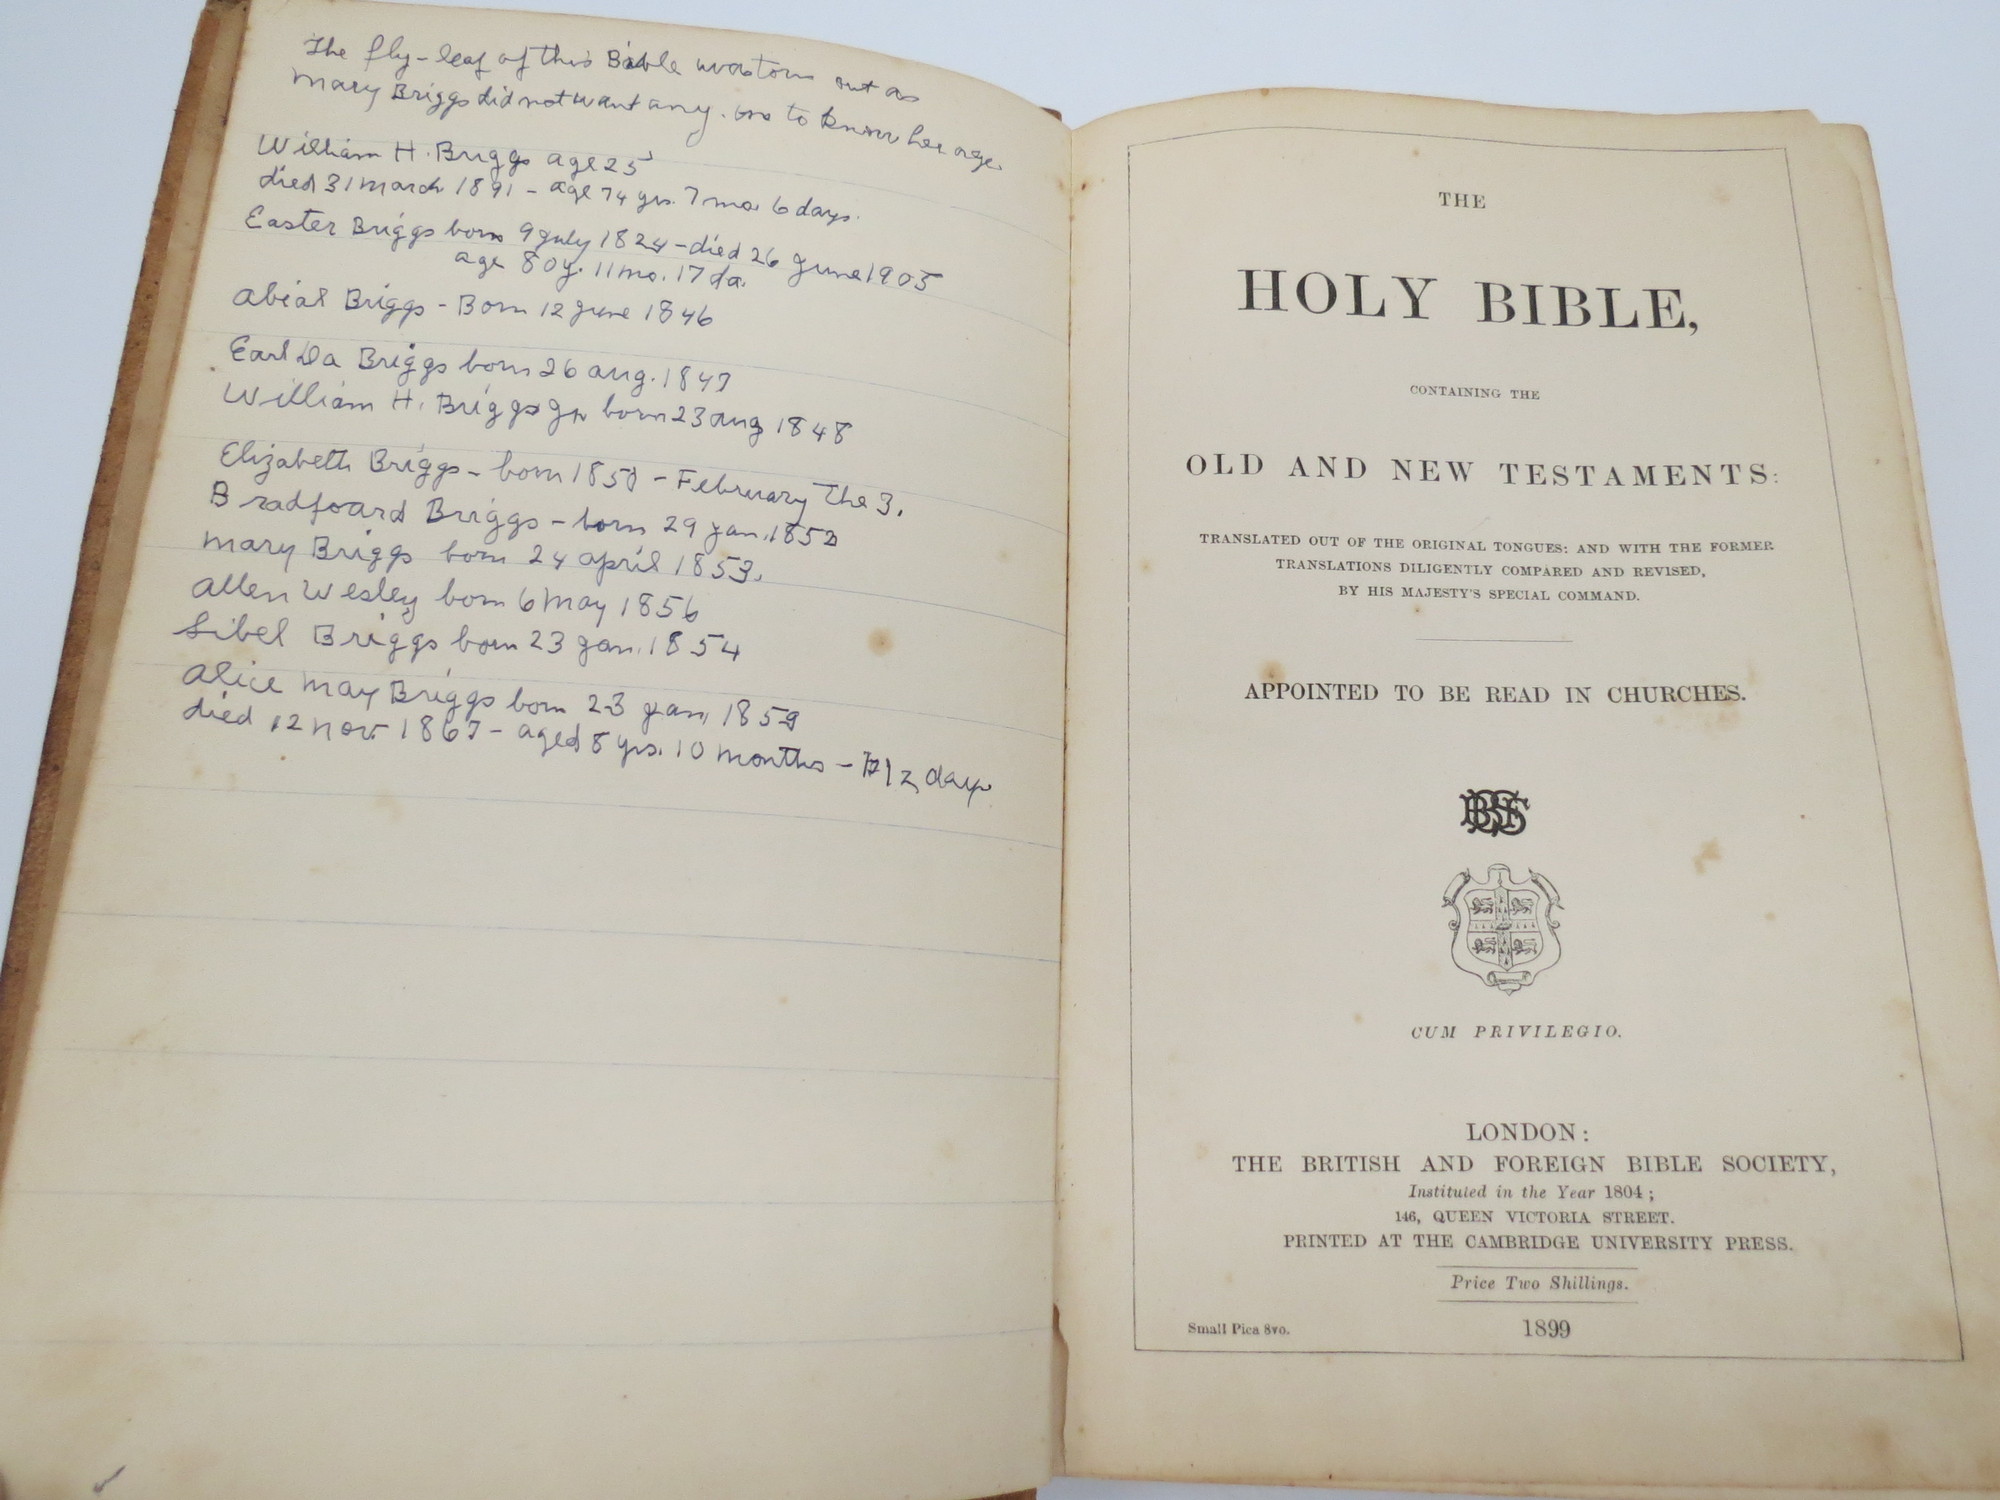 The fly-leaf of this Bible was torn out as
Mary Briggs did not want any. one to know her age.
William H. Briggs age 25
died 31 March 1891 - age 74 yrs. 7 mo 6 days.
Easter Briggs born 9 July 1824 - died 26 June 1905
age 80 y. 11 mo. 17 da.
Abial Briggs - Born 12 June 1846
Briggs born 26 aug. 1847
William H. Briggs Jr born 23 aug 1848
Elizabeth Briggs - born 1850 - February The 3.
Bradfoard Briggs - born 29 Jan. 1852
Mary Briggs born 24 april 1853.
Allen Wesley born 6 May 1856
Sibel Briggs born 23 Jan. 1854
Alice May Briggs born 23 Jan, 1859
died 12 nov 1867 - aged 8 yrs. 10 months - 12 days
THE
HOLY BIBLE,
CONTAINING THE
OLD AND NEW TESTAMENTS:
TRANSLATED OUT OF THE ORIGINAL TONGUES: AND WITH THE FORMER
TRANSLATIONS DILIGENTLY COMPARED AND REVISED,
BY HIS MAJESTY'S SPECIAL COMMAND.
APPOINTED TO BE READ IN CHURCHES.
CUM PRIVILEGIO.
LONDON:
THE BRITISH AND FOREIGN BIBLE SOCIETY,
Instituted in the Year 1804;
146, QUEEN VICTORIA STREET.
PRINTED AT THE CAMBRIDGE UNIVERSITY PRESS.
Price Two Shillings.
Small Pica 8vo.
1899